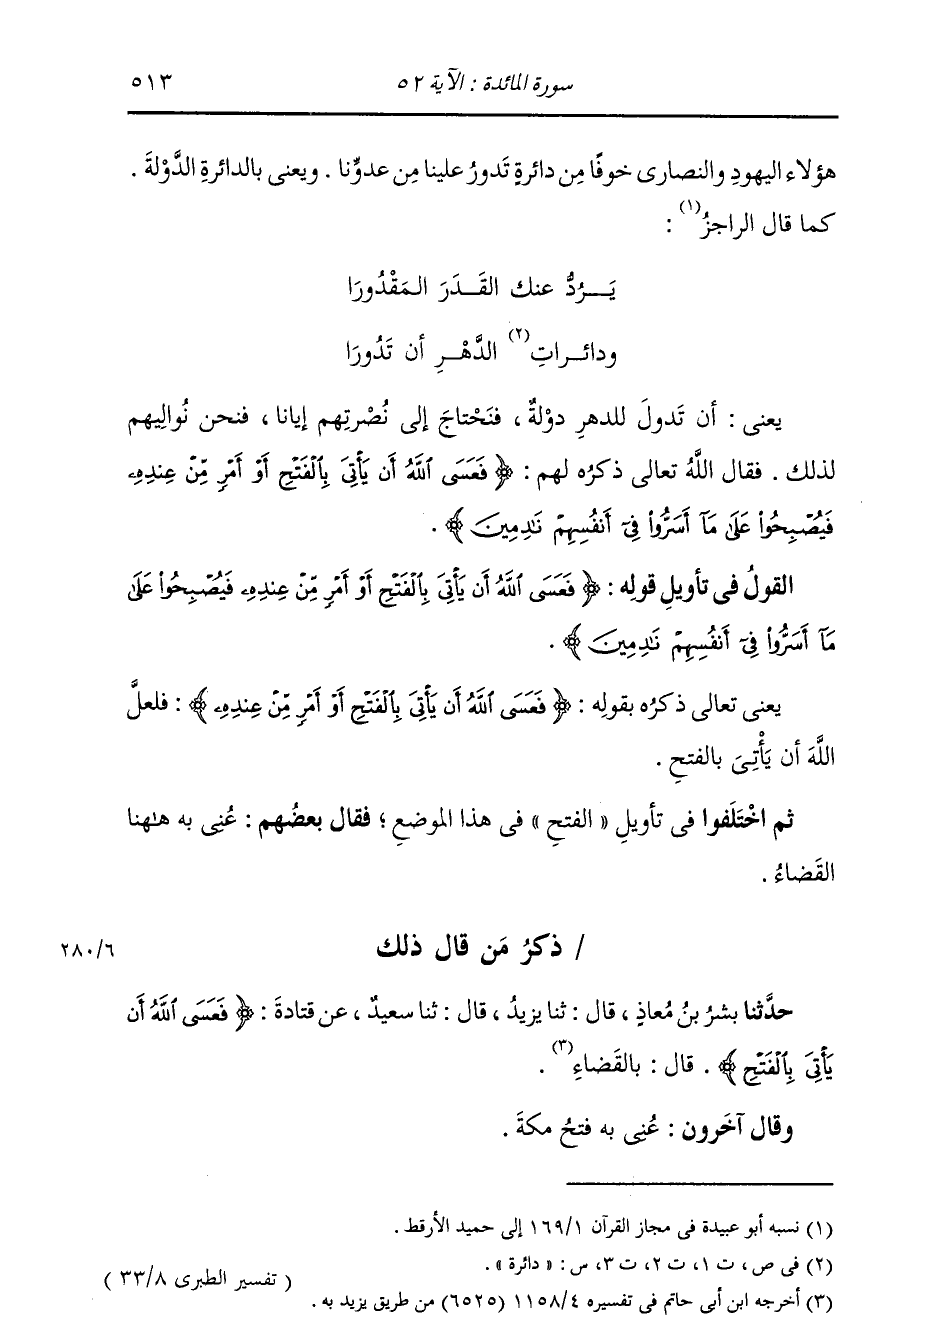 سورة المائدة : الآية ٥٢ ٥١٣
هؤلاء اليهودِ والنصارى خوفًا مِن دائرةٍ تَدورُ علينا مِن عدوِّنا . ويعنى بالدائرةِ الدَّوْلةَ .
كما قال الراجزُ(١) :
يَـــرُدُّ عنك القَــدَرَ المَقْدُورَا
ودائــراتِ(٢) الدَّهْــرِ أن تَدُورَا
يعنى : أن تَدولَ للدهرِ دوْلةٌ ، فنَحْتاجَ إلى نُصْرتِهم إيانا ، فنحن نُوالِيهم
لذلك . فقال اللَّهُ تعالى ذكرُه لهم : ﴿ فَعَسَى ٱللَّهُ أَن يَأْتِىَ بِٱلْفَتْحِ أَوْ أَمْرٍ مِّنْ عِندِهِۦ
فَيُصْبِحُوا۟ عَلَىٰ مَآ أَسَرُّوا۟ فِىٓ أَنفُسِهِمْ نَـٰدِمِينَ ﴾ .
القولُ فى تأويلِ قولِه : ﴿ فَعَسَى ٱللَّهُ أَن يَأْتِىَ بِٱلْفَتْحِ أَوْ أَمْرٍ مِّنْ عِندِهِۦ فَيُصْبِحُوا۟ عَلَىٰ
مَآ أَسَرُّوا۟ فِىٓ أَنفُسِهِمْ نَـٰدِمِينَ ﴾ .
يعنى تعالى ذكرُه بقولِه : ﴿ فَعَسَى ٱللَّهُ أَن يَأْتِىَ بِٱلْفَتْحِ أَوْ أَمْرٍ مِّنْ عِندِهِۦ ﴾ : فلعلَّ
اللَّهَ أن يَأْتِىَ بالفتحِ .
ثم اخْتَلَفوا فى تأويلِ « الفتحِ » فى هذا الموضعِ ؛ فقال بعضُهم : عُنِى به هلهنا
القَضاءُ .
/ ذكرُ مَن قال ذلك ٢٨٠/٦
حدَّثنا بشرُ بنُ مُعاذٍ ، قال : ثنا يزيدُ ، قال : ثنا سعيدٌ ، عن قتادةَ : ﴿ فَعَسَى ٱللَّهُ أَن
يَأْتِىَ بِٱلْفَتْحِ ﴾ . قال : بالقَضاءِ(٣) .
وقال آخَرون : عُنِى به فتحُ مكةَ .
(١) نسبه أبو عبيدة فى مجاز القرآن ١٦٩/١ إلى حميد الأرقط .
(٢) فى ص ، ت ١، ت ٢، ت ٣، س : « دائرة » .
(٣) أخرجه ابن أبى حاتم فى تفسيره ١١٥٨/٤ (٦٥٢٥) من طريق يزيد به .
( تفسير الطبرى ٣٣/٨ )